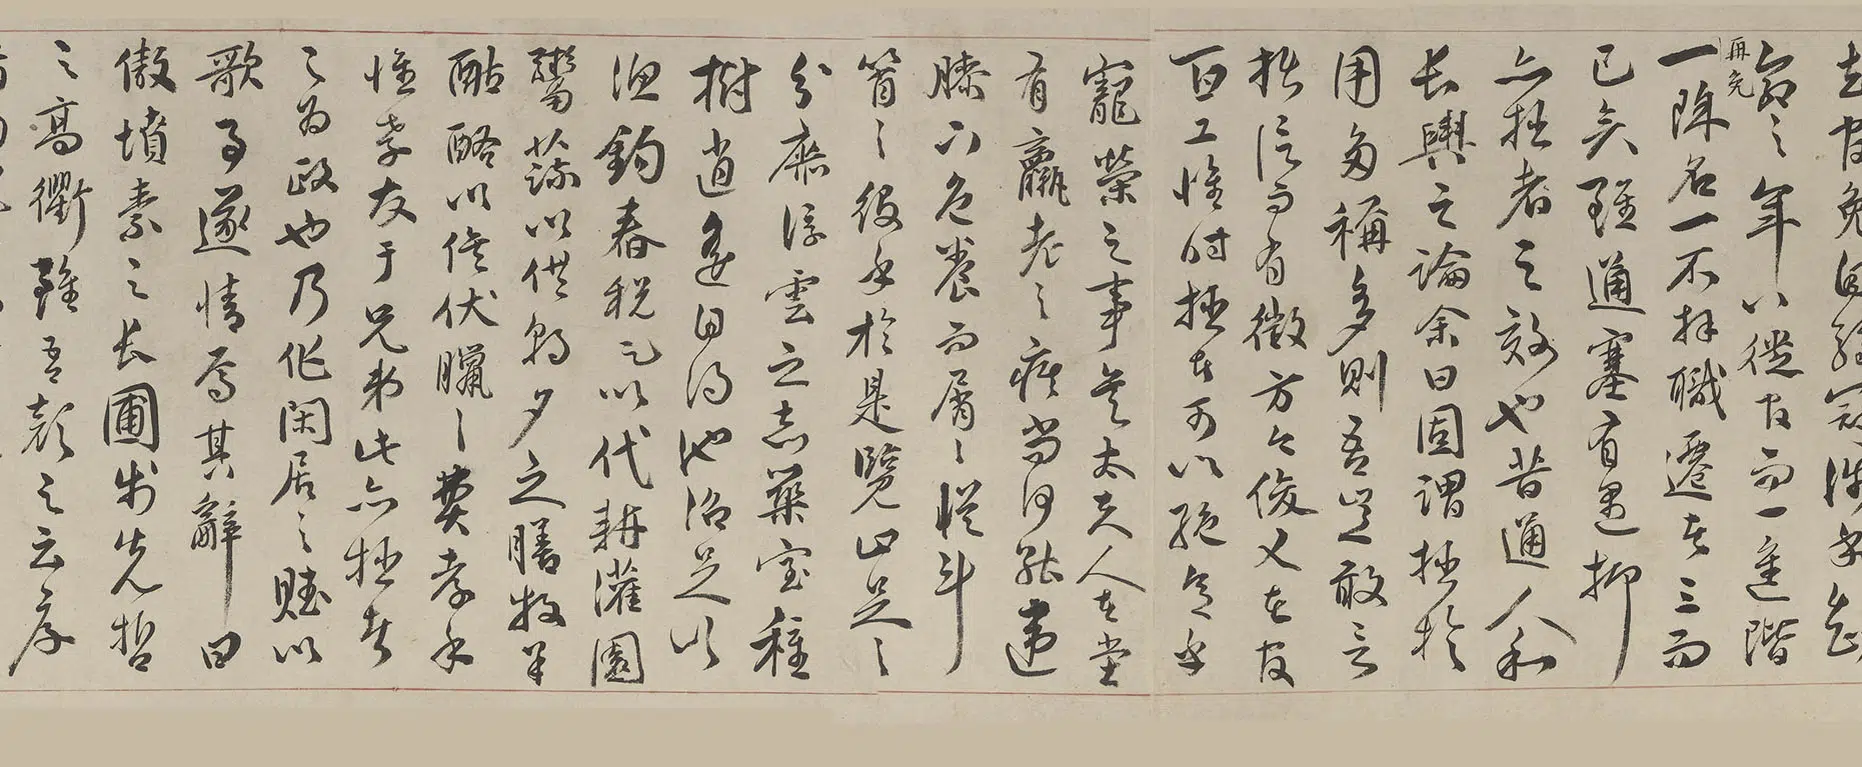 知命之年八徙官而一進階再免
一除名一不拜職遷者三而
已矣雖通塞有遇抑
亦拙者之效也昔通人和
長輿之論余曰固謂拙於
用多稱多則吾豈敢言
拙信而有徵方今俊乂在官
百工惟時拙者可以絕意乎
寵榮之事矣太夫人在堂
有羸老之疾尚何能違
膝下色養而屑屑從斗
筲之役乎於是覽止足之
分庶浮雲之志築室種
樹逍遙自得池沼足以
漁釣舂稅足以代耕灌園
鬻蔬以供朝夕之膳牧羊
酤酪以俟伏臘之費孝乎
惟孝友于兄弟此亦拙者
之為政也乃作閑居之賦以
歌事遂情焉其辭曰
傲墳素之長圃步先哲
之高衢雖吾顏之云厚